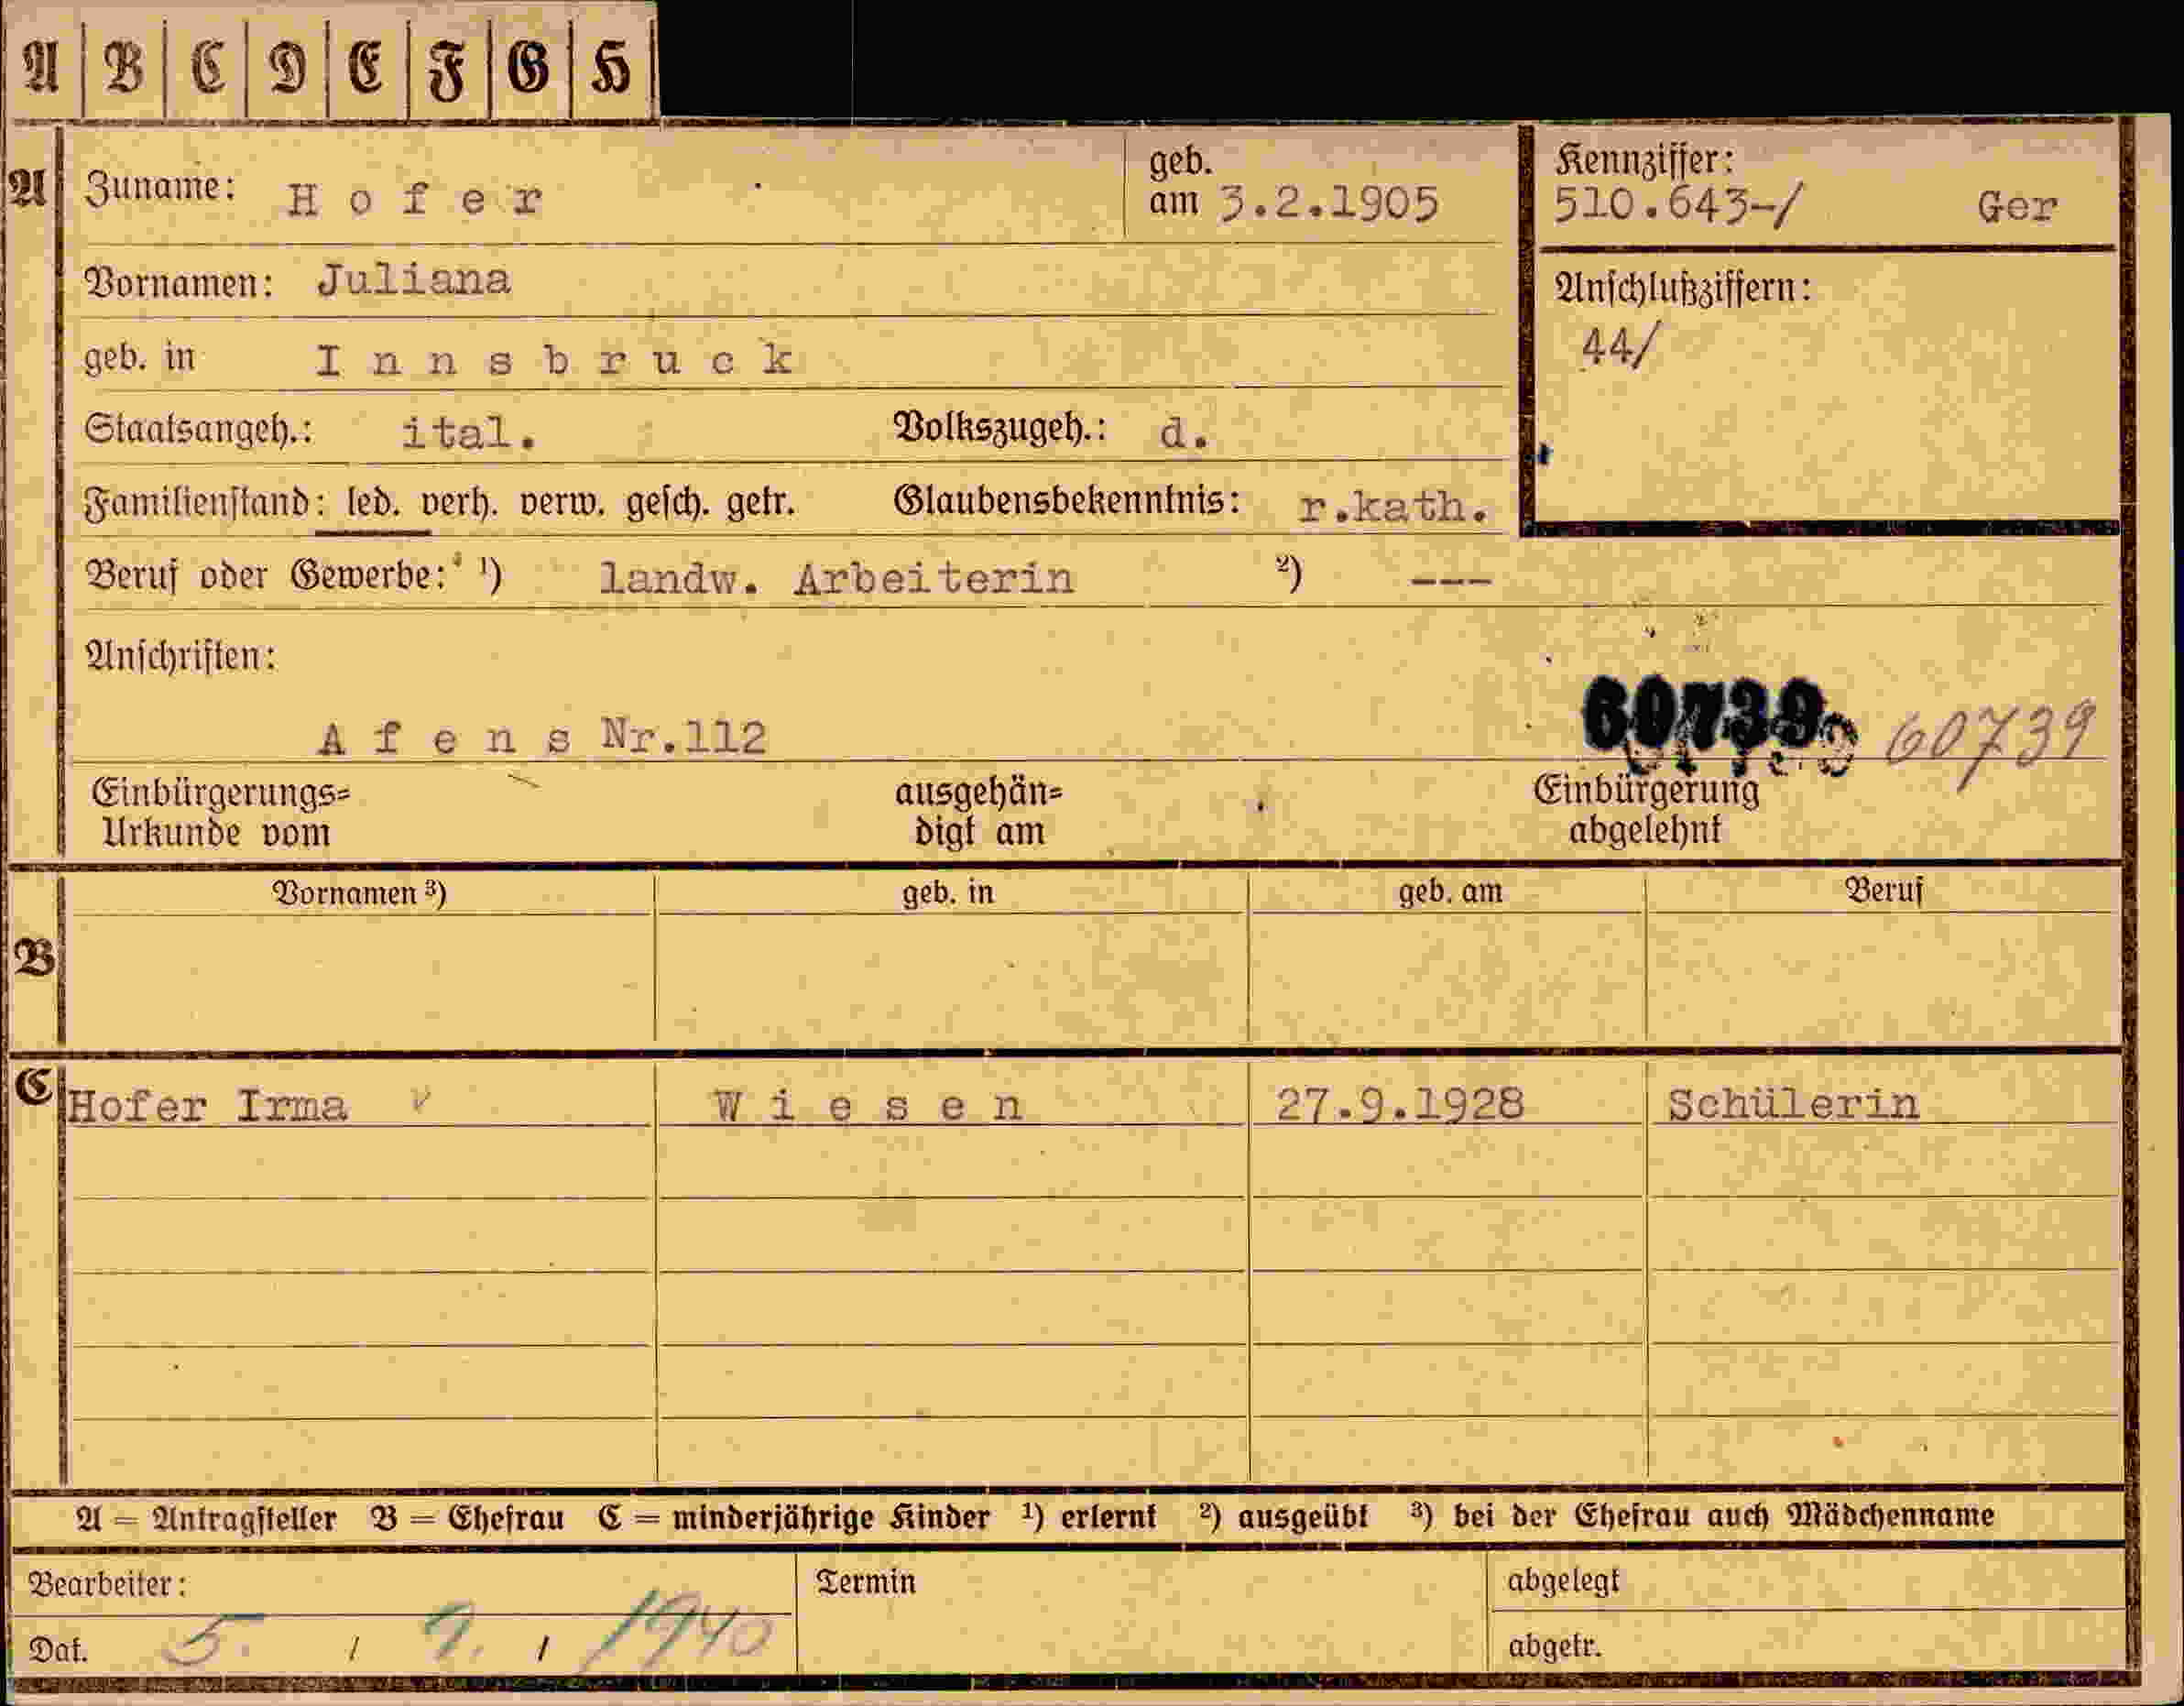 A B C D E F G H
A Zuname: Hofer geb. am 3.2.1905
Kennziffer: 510.643-/ Ger
Vornamen: Juliana
Anschlußziffern: 44/
geb. in Innsbruck
Staatsangeh.: ital. Volkszugeh.: d.
Familienstand: led. verh. verw. gesch. getr. Glaubensbekenntnis: r.kath.
Beruf oder Gewerbe: ¹) landw. Arbeiterin ²) ---
Anschriften:
Afens Nr.112 60739 60739
Einbürgerungs= ausgehän= Einbürgerung
Urkunde vom digt am abgelehnt
B Vornamen ³) geb. in geb. am Beruf
C Hofer Irma Wiesen 27.9.1928 Schülerin
A = Antragsteller B = Ehefrau C = minderjährige Kinder ¹) erlernt ²) ausgeübt ³) bei der Ehefrau auch Mädchenname
Bearbeiter: Termin abgelegt
Dat. 5. / 9. / 1940 abgetr.